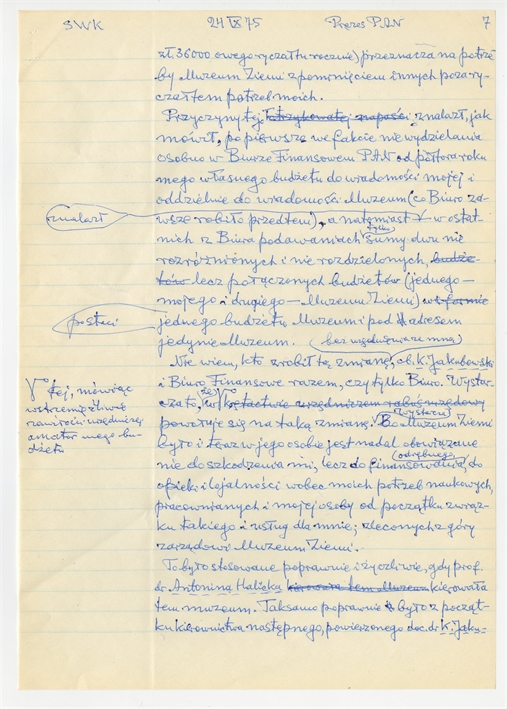 SWK 24 IX 75 Prezes PAN 7
zł. 36000 owego ryczałtu rocznie) przeznacza na potrze
by Muzeum Ziemi z pominięciem innych poza ry-
czałtem potrzeb moich.
Przyczyny tej znalazł, jak
mówił, po pierwsze we fakcie nie wydzielania
osobno w Biurze Finansowem PAN od półtora roku
mego własnego budżetu do wiadomości mojej i
oddzielnie do wiadomości Muzeum (co Biuro za-
znalazł
wsze robiło przedtem), a natomiast w ostat-
nich z Biura podawaniach tylko sumy dwu nie
rozróżnionych i nie rozdzielonych, budże-
tów lecz połączonych budżetów (jednego —
mojego i drugiego — Muzeum Ziemi) w formie
postaci
jednego budżetu Muzeum i pod adresem
jedynie Muzeum. (bez wzmianki o mnie)
Nie wiem, kto zrobił tę zmianę, ob. K. Jakubowski
i Biuro Finansowe razem, czy tylko Biuro. Wystar-
tej, mówiąc
wstrzemięźliwie
amator mego bu-
dżetu
czało, że
powołuje się na taką zmianę. Bo Muzeum Ziemi
było i teraz w jego osobie jest nadal obowiązane
nie do szkodzenia mi, lecz do (odrębnego) finansowania, do
opieki i lojalności wobec moich potrzeb naukowych,
pracownianych i mojej osoby od początku związ-
ku takiego i usług dla mnie, zleconych z góry
zarządowi Muzeum Ziemi.
To było stosowane poprawnie i życzliwie, gdy prof.
dr. Antonina Halicka kierowała tem Muzeum kierowała
tem muzeum. Tak samo poprawnie było z począt-
ku kierownictwa następnego, powierzonego doc. dr K. Jaku-